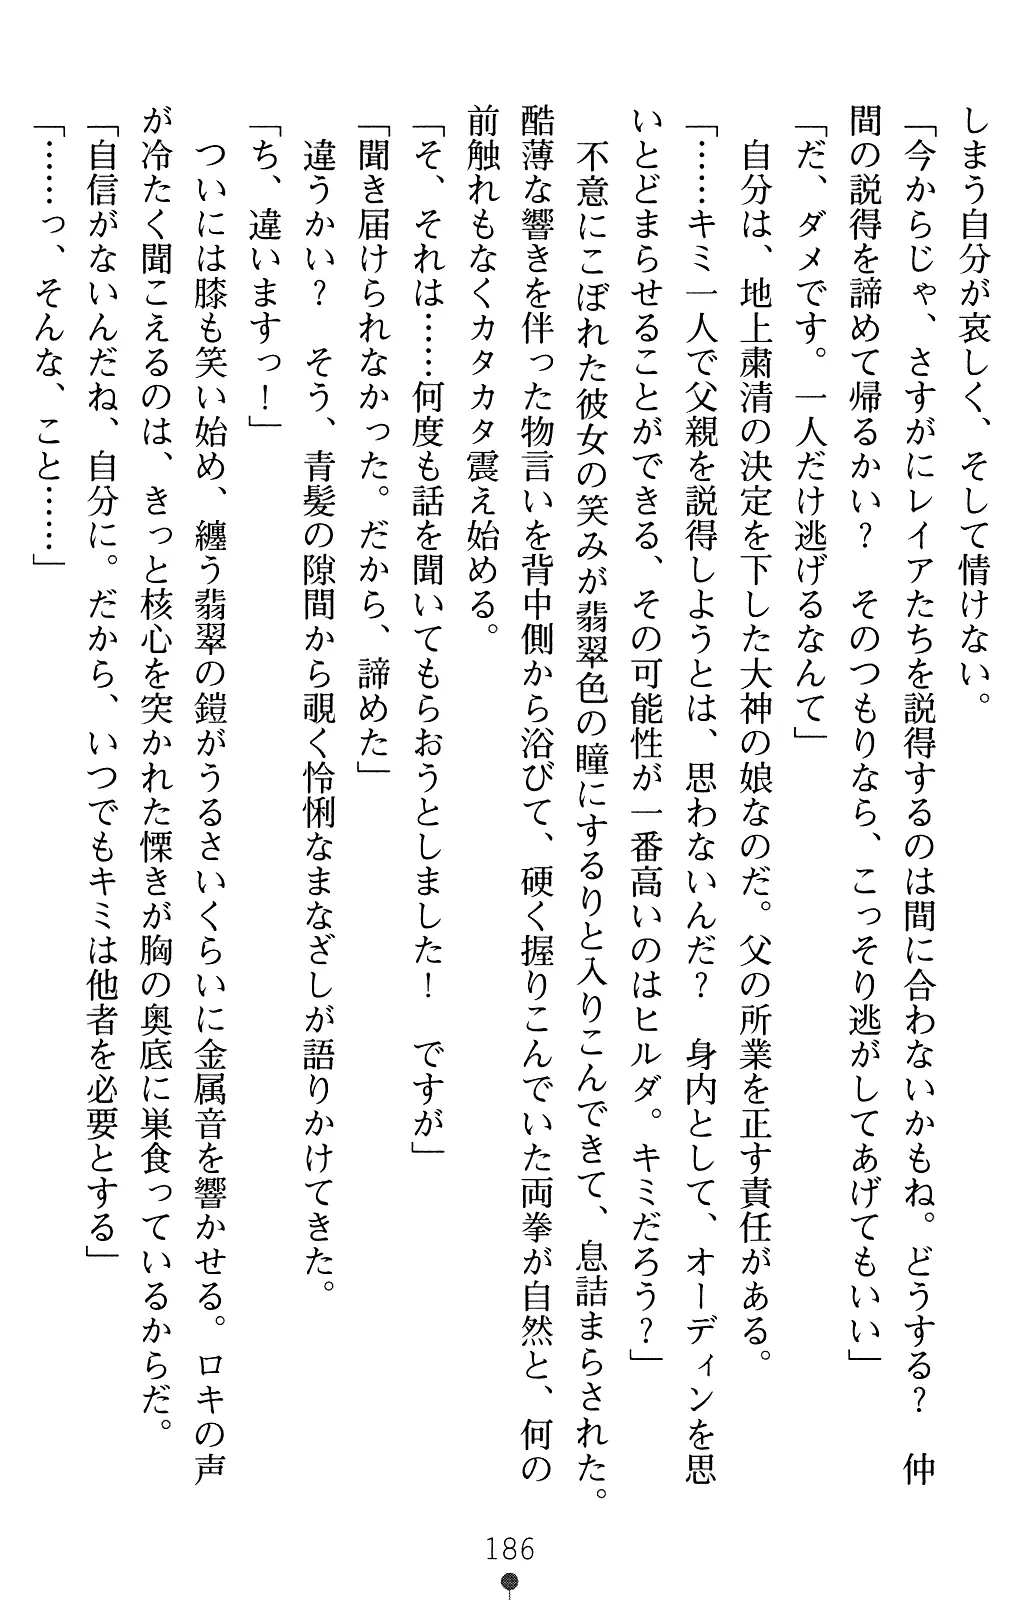 しまう自分が哀しく、そして情けない。
「今からじゃ、さすがにレイアたちを説得するのは間に合わないかもね。どうする？　仲
間の説得を諦めて帰るかい？　そのつもりなら、こっそり逃がしてあげてもいい」
「だ、ダメです。一人だけ逃げるなんて」
　自分は、地上粛清の決定を下した大神の娘なのだ。父の所業を正す責任がある。
「……キミ一人で父親を説得しようとは、思わないんだ？　身内として、オーディンを思
いとどまらせることができる、その可能性が一番高いのはヒルダ。キミだろう？」
　不意にこぼれた彼女の笑みが翡翠色の瞳にするりと入りこんできて、息詰まらされた。
酷薄な響きを伴った物言いを背中側から浴びて、硬く握りこんでいた両拳が自然と、何の
前触れもなくカタカタ震え始める。
「そ、それは……何度も話を聞いてもらおうとしました！　ですが」
「聞き届けられなかった。だから、諦めた」
　違うかい？　そう、青髪の隙間から覗く怜悧なまなざしが語りかけてきた。
「ち、違いますっ！」
　ついには膝も笑い始め、纏う翡翠の鎧がうるさいくらいに金属音を響かせる。ロキの声
が冷たく聞こえるのは、きっと核心を突かれた慄きが胸の奥底に巣食っているからだ。
「自信がないんだね、自分に。だから、いつでもキミは他者を必要とする」
「……っ、そんな、こと……」
186